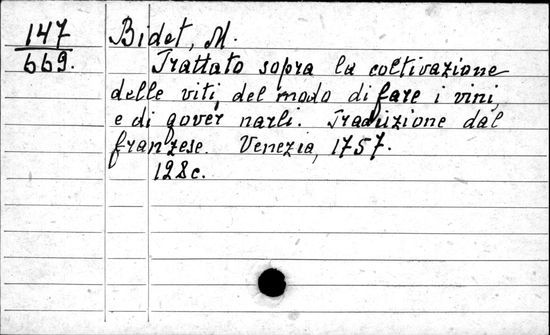 147
669.
Bidet, M.
Trattato sopra la coltivazione
delle viti del modo di fare i vini,
e di gover narli. Traduzione dal
franzese. Venezia, 1757.
128c.